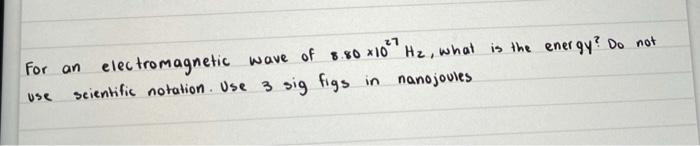 For an electromagnetic wave of 8.80 x10²⁷ Hz, what is the energy? Do not
use scientific notation. Use 3 sig figs in nanojoules